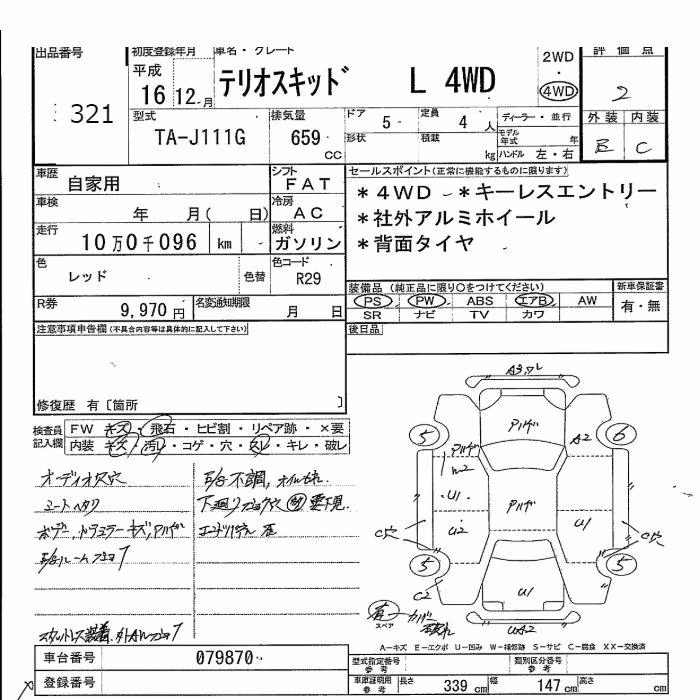 出品番号 初度登録年月 車名・グレード 2WD ・ 4WD 評価点
321 平成 16 12 月 テリオスキッド L 4WD 2
型式 排気量 ドア 5 定員 4 人 ディーラー・並行 外装 内装
TA-J111G 659 CC 形状 積載 kg モデル年式 年 E C
ハンドル 左・右
車歴 自家用 シフト FAT セールスポイント(正常に機能するものに限ります)
車検 年 月( 日) 冷房 AC *4WD *キーレスエントリー
*社外アルミホイール
走行 10万0千096 km 燃料 ガソリン *背面タイヤ
色 レッド 色替 色コード R29
装備品(純正品に限り〇をつけてください) 新車保証書
R券 9,970円 名変通知期限 月 日 PS PW ABS エアB AW 有・無
SR ナビ TV カワ
注意事項申告欄(不具合内容等は具体的に記入して下さい) 後日品
修復歴 有〔箇所 〕
検査員記入欄 FW キズ・飛石・ヒビ割・リペア跡・×要
内装 キズ・汚レ・コゲ・穴・スレ・キレ・破レ
オーディオ欠穴 E/g不調,オイルもれ.
シートヘタリ
E/gルームフショク
A3,ワレ
アルゲ
5 6
A2
アルゲ
U1 アルゲ
U2 U1
C穴 C穴
5 5
C2 U1
有 スペア カバー
UA2
A-キズ E-エクボ U-凹み W-補修跡 S-サビ C-腐食 XX-交換済
車台番号 079870 型式指定番号 参考 類別区分番号 参考
登録番号 車庫証明用 参考 長さ 339 cm 幅 147 cm 高さ cm